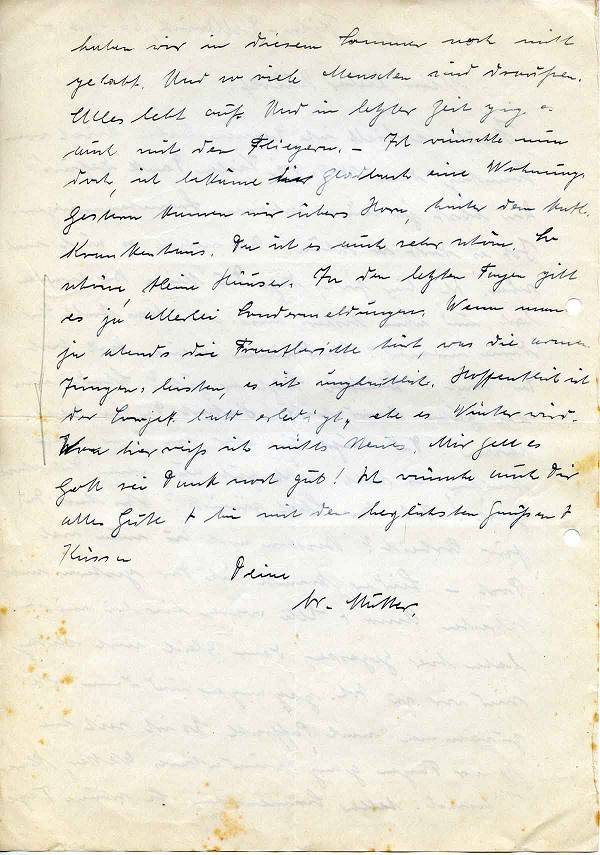 haben wir in diesem Sommer noch nicht
gehabt. Und so viele Menschen sind draußen.
Alles lebt auf. Und in letzter Zeit ging e
auch mit den Fliegern. – Ich wünschte nun
doch, ich bekäme in Gladbach eine Wohnung.
Gestern kamen wir übers Horn, hinter dem kath.
Krankenhaus. Da ist es auch sehr schön. So
schöne, kleine Häuser. In den letzten Tagen gibt
es ja allerlei Sondermeldungen. Wenn man
ja abends die Frontberichte hört, was die armen
Jungens leisten, es ist unglaublich. Hoffentlich ist
der Sowjet bald erledigt, ehe es Winter wird.
Von hier weiß ich nichts Neues. Mir geht es
Gott sei Dank noch gut! Ich wünsche auch Dir
alles Gute + bin mit den herzlichsten Grüßen +
Küssen
Deine
Mutter.